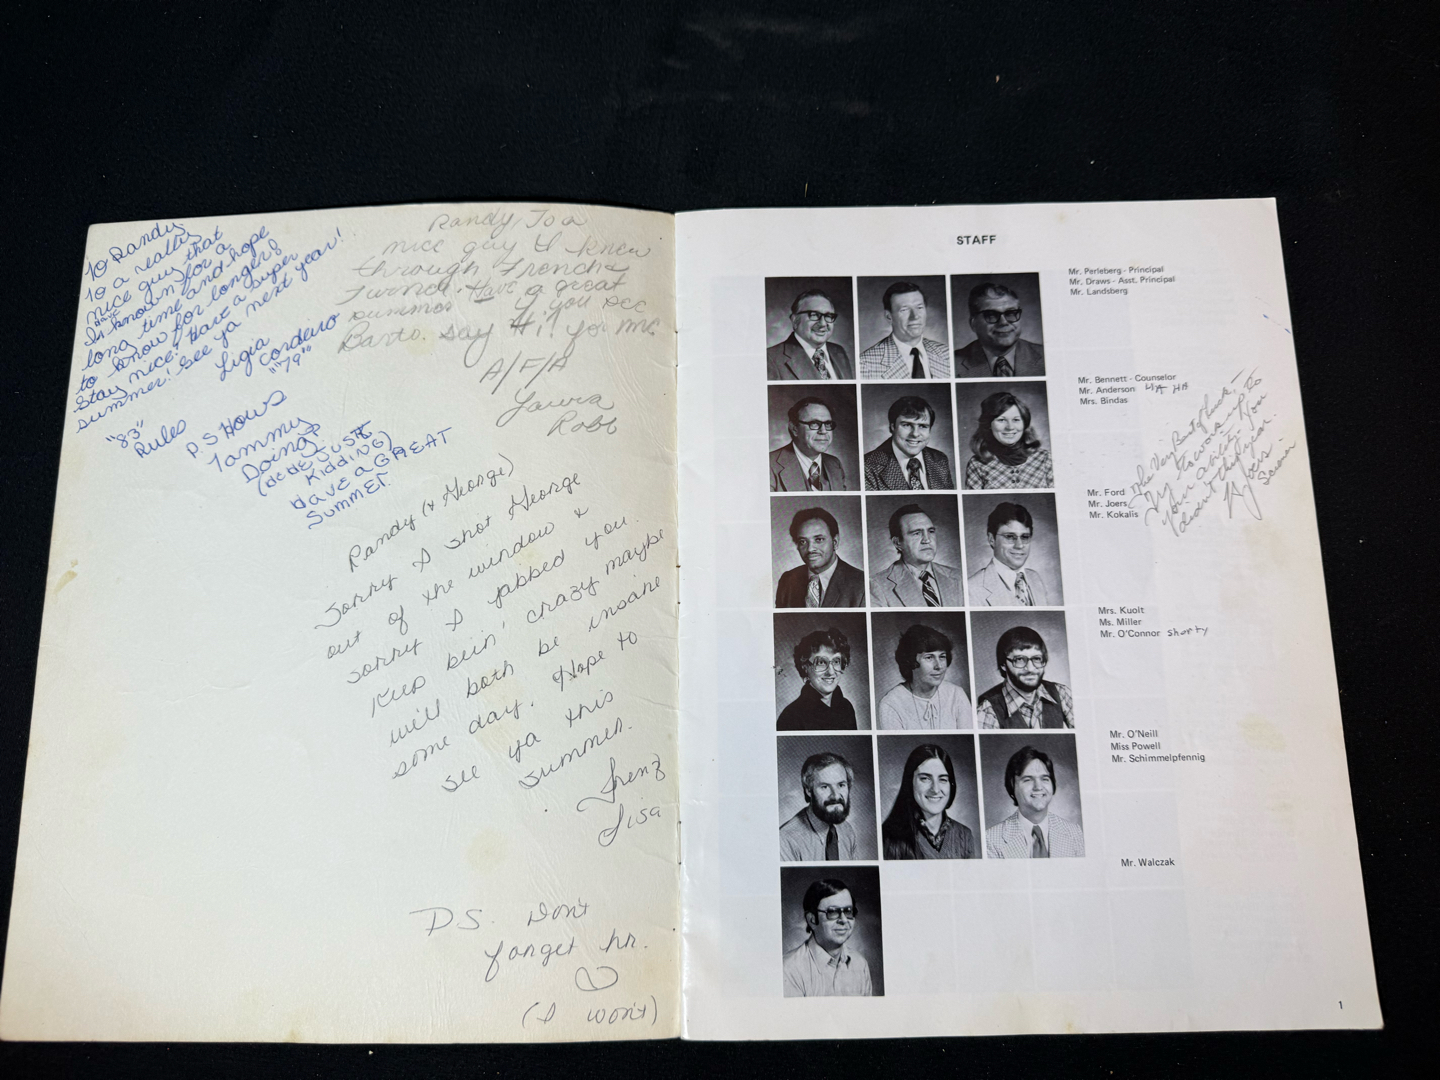 To Randy
To a really
nice guy that
I have known for a
long time and hope
to know for longer!
Stay nice! Have a super
summer! See ya next year!
Ligia
Cordeiro
"79"
"83"
Rules
P.S Hows
Tammy
Doing?
(HEHE, JUST
KIDDING)
HAVE A GREAT
SUMMER
Randy, To a
nice guy I knew
through French &
Have a great
summer If you see
say Hi! for me
A/F/A
Laura
Robb
Randy (& George)
Sorry I shot George
out of the window &
sorry I jabbed you.
Keep bein' crazy maybe
we'll both be insane
some day. Hope to
see ya this
summer.
Frenz
Lisa
P.S. Don't
forget hr.
(I won't)
STAFF
Mr. Perleberg - Principal
Mr. Draws - Asst. Principal
Mr. Landsberg
Mr. Bennett - Counselor
Mr. Anderson HA HA
Mrs. Bindas
Mr. Ford
Mr. Joers
Mr. Kokalis
The Very Best of luck -
Try to work up to
your ability. You
didn't this year.
Joers
Science
Mrs. Kuolt
Ms. Miller
Mr. O'Connor shorty
Mr. O'Neill
Miss Powell
Mr. Schimmelpfennig
Mr. Walczak
1